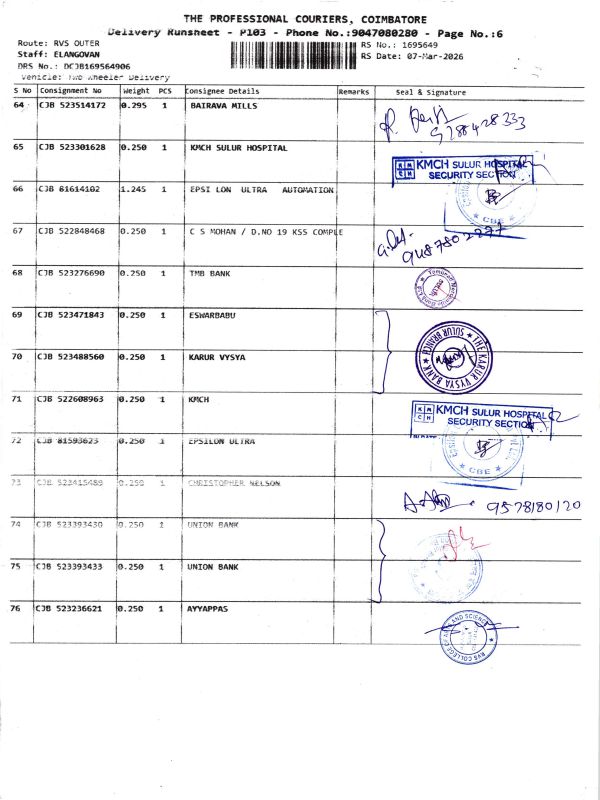 THE PROFESSIONAL COURIERS, COIMBATORE
Delivery Runsheet - P103 - Phone No.:9047080280 - Page No.:6
Route: RVS OUTER
RS No.: 1695649
Staff: ELANGOVAN
RS Date: 07-Mar-2026
DRS No.: DCJB169564906
Vehicle: Two Wheeler Delivery
S No Consignment No Weight PCS Consignee Details Remarks Seal & Signature
64 CJB 523514172 0.295 1 BAIRAVA MILLS
65 CJB 523301628 0.250 1 KMCH SULUR HOSPITAL
KMCH SULUR HOSPITAL
SECURITY SECTION
66 CJB 81614102 1.245 1 EPSI LON ULTRA AUTOMATION
CBE
67 CJB 522848468 0.250 1 C S MOHAN / D.NO 19 KSS COMPLE
9487802277
68 CJB 523276690 0.250 1 TMB BANK
69 CJB 523471843 0.250 1 ESWARBABU
70 CJB 523488560 0.250 1 KARUR VYSYA
THE KARUR VYSYA BANK
SULUR BRANCH
71 CJB 522608963 0.250 1 KMCH
KMCH SULUR HOSPITAL
SECURITY SECTION
72 CJB 81593623 0.250 1 EPSILON ULTRA
CBE
73 CJB 523415489 0.250 1 CHRISTOPHER NELSON
9578180120
74 CJB 523393430 0.250 1 UNION BANK
75 CJB 523393433 0.250 1 UNION BANK
76 CJB 523236621 0.250 1 AYYAPPAS
RVS COLLEGE OF ARTS AND SCIENCE